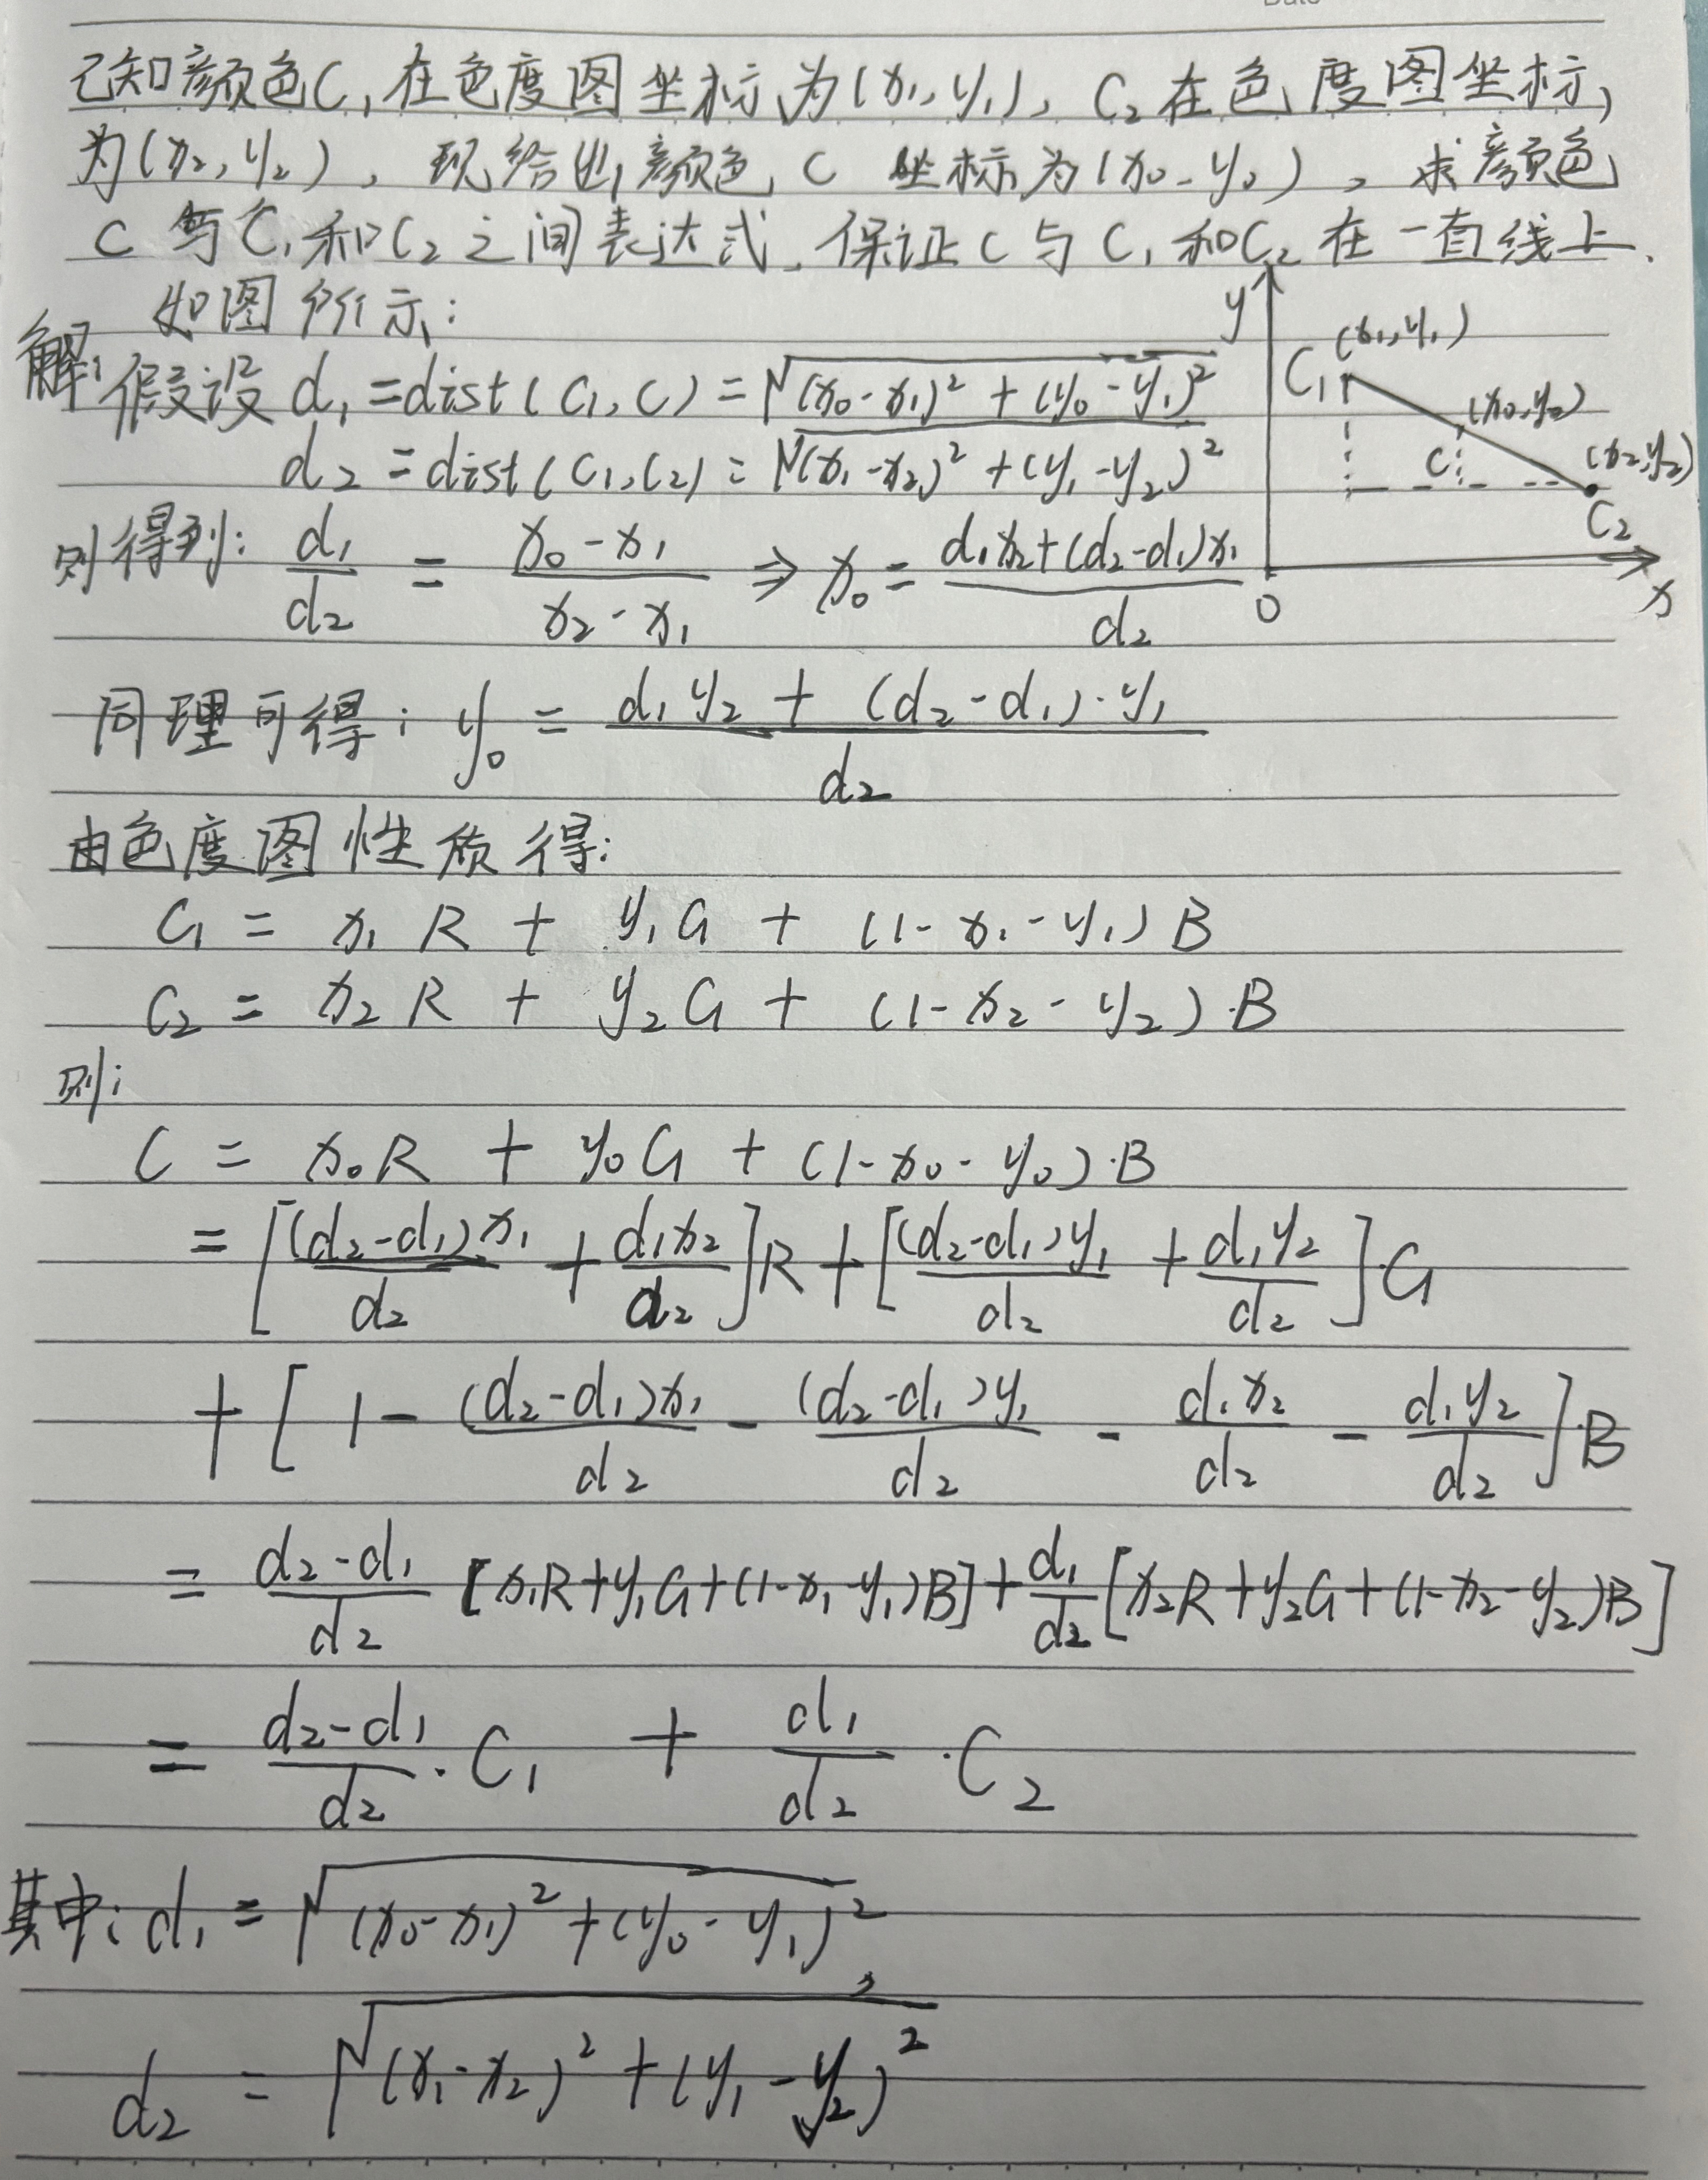 Date
已知颜色C₁在色度图坐标为(x₁,y₁), C₂在色度图坐标,
为(x₂,y₂), 现给出颜色C 坐标为(x₀,y₀), 求颜色
C与C₁和C₂之间表达式,保证C与C₁和C₂在一直线上.
如图所示:
解:假设 d₁=dist(C₁,C)=√((x₀-x₁)²+(y₀-y₁)²)
d₂=dist(C₁,C₂)=√((x₁-x₂)²+(y₁-y₂)²)
y
(x₁,y₁)
C₁
(x₀,y₀)
C
(x₂,y₂)
C₂
0
x
则得到: d₁/d₂ = (x₀-x₁)/(x₂-x₁) ⇒ x₀ = (d₁x₂+(d₂-d₁)x₁)/d₂
同理可得: y₀ = (d₁y₂+(d₂-d₁)·y₁)/d₂
由色度图性质得:
C₁ = x₁R + y₁G + (1-x₁-y₁)B
C₂ = x₂R + y₂G + (1-x₂-y₂)·B
则:
C = x₀R + y₀G + (1-x₀-y₀)·B
= [(d₂-d₁)x₁/d₂ + d₁x₂/d₂]R + [(d₂-d₁)y₁/d₂ + d₁y₂/d₂]·G
+ [1 - (d₂-d₁)x₁/d₂ - (d₂-d₁)y₁/d₂ - d₁x₂/d₂ - d₁y₂/d₂]·B
= (d₂-d₁)/d₂ [x₁R+y₁G+(1-x₁-y₁)B] + d₁/d₂ [x₂R+y₂G+(1-x₂-y₂)B]
= (d₂-d₁)/d₂·C₁ + d₁/d₂·C₂
其中: d₁ = √((x₀-x₁)²+(y₀-y₁)²),
d₂ = √((x₁-x₂)²+(y₁-y₂)²)